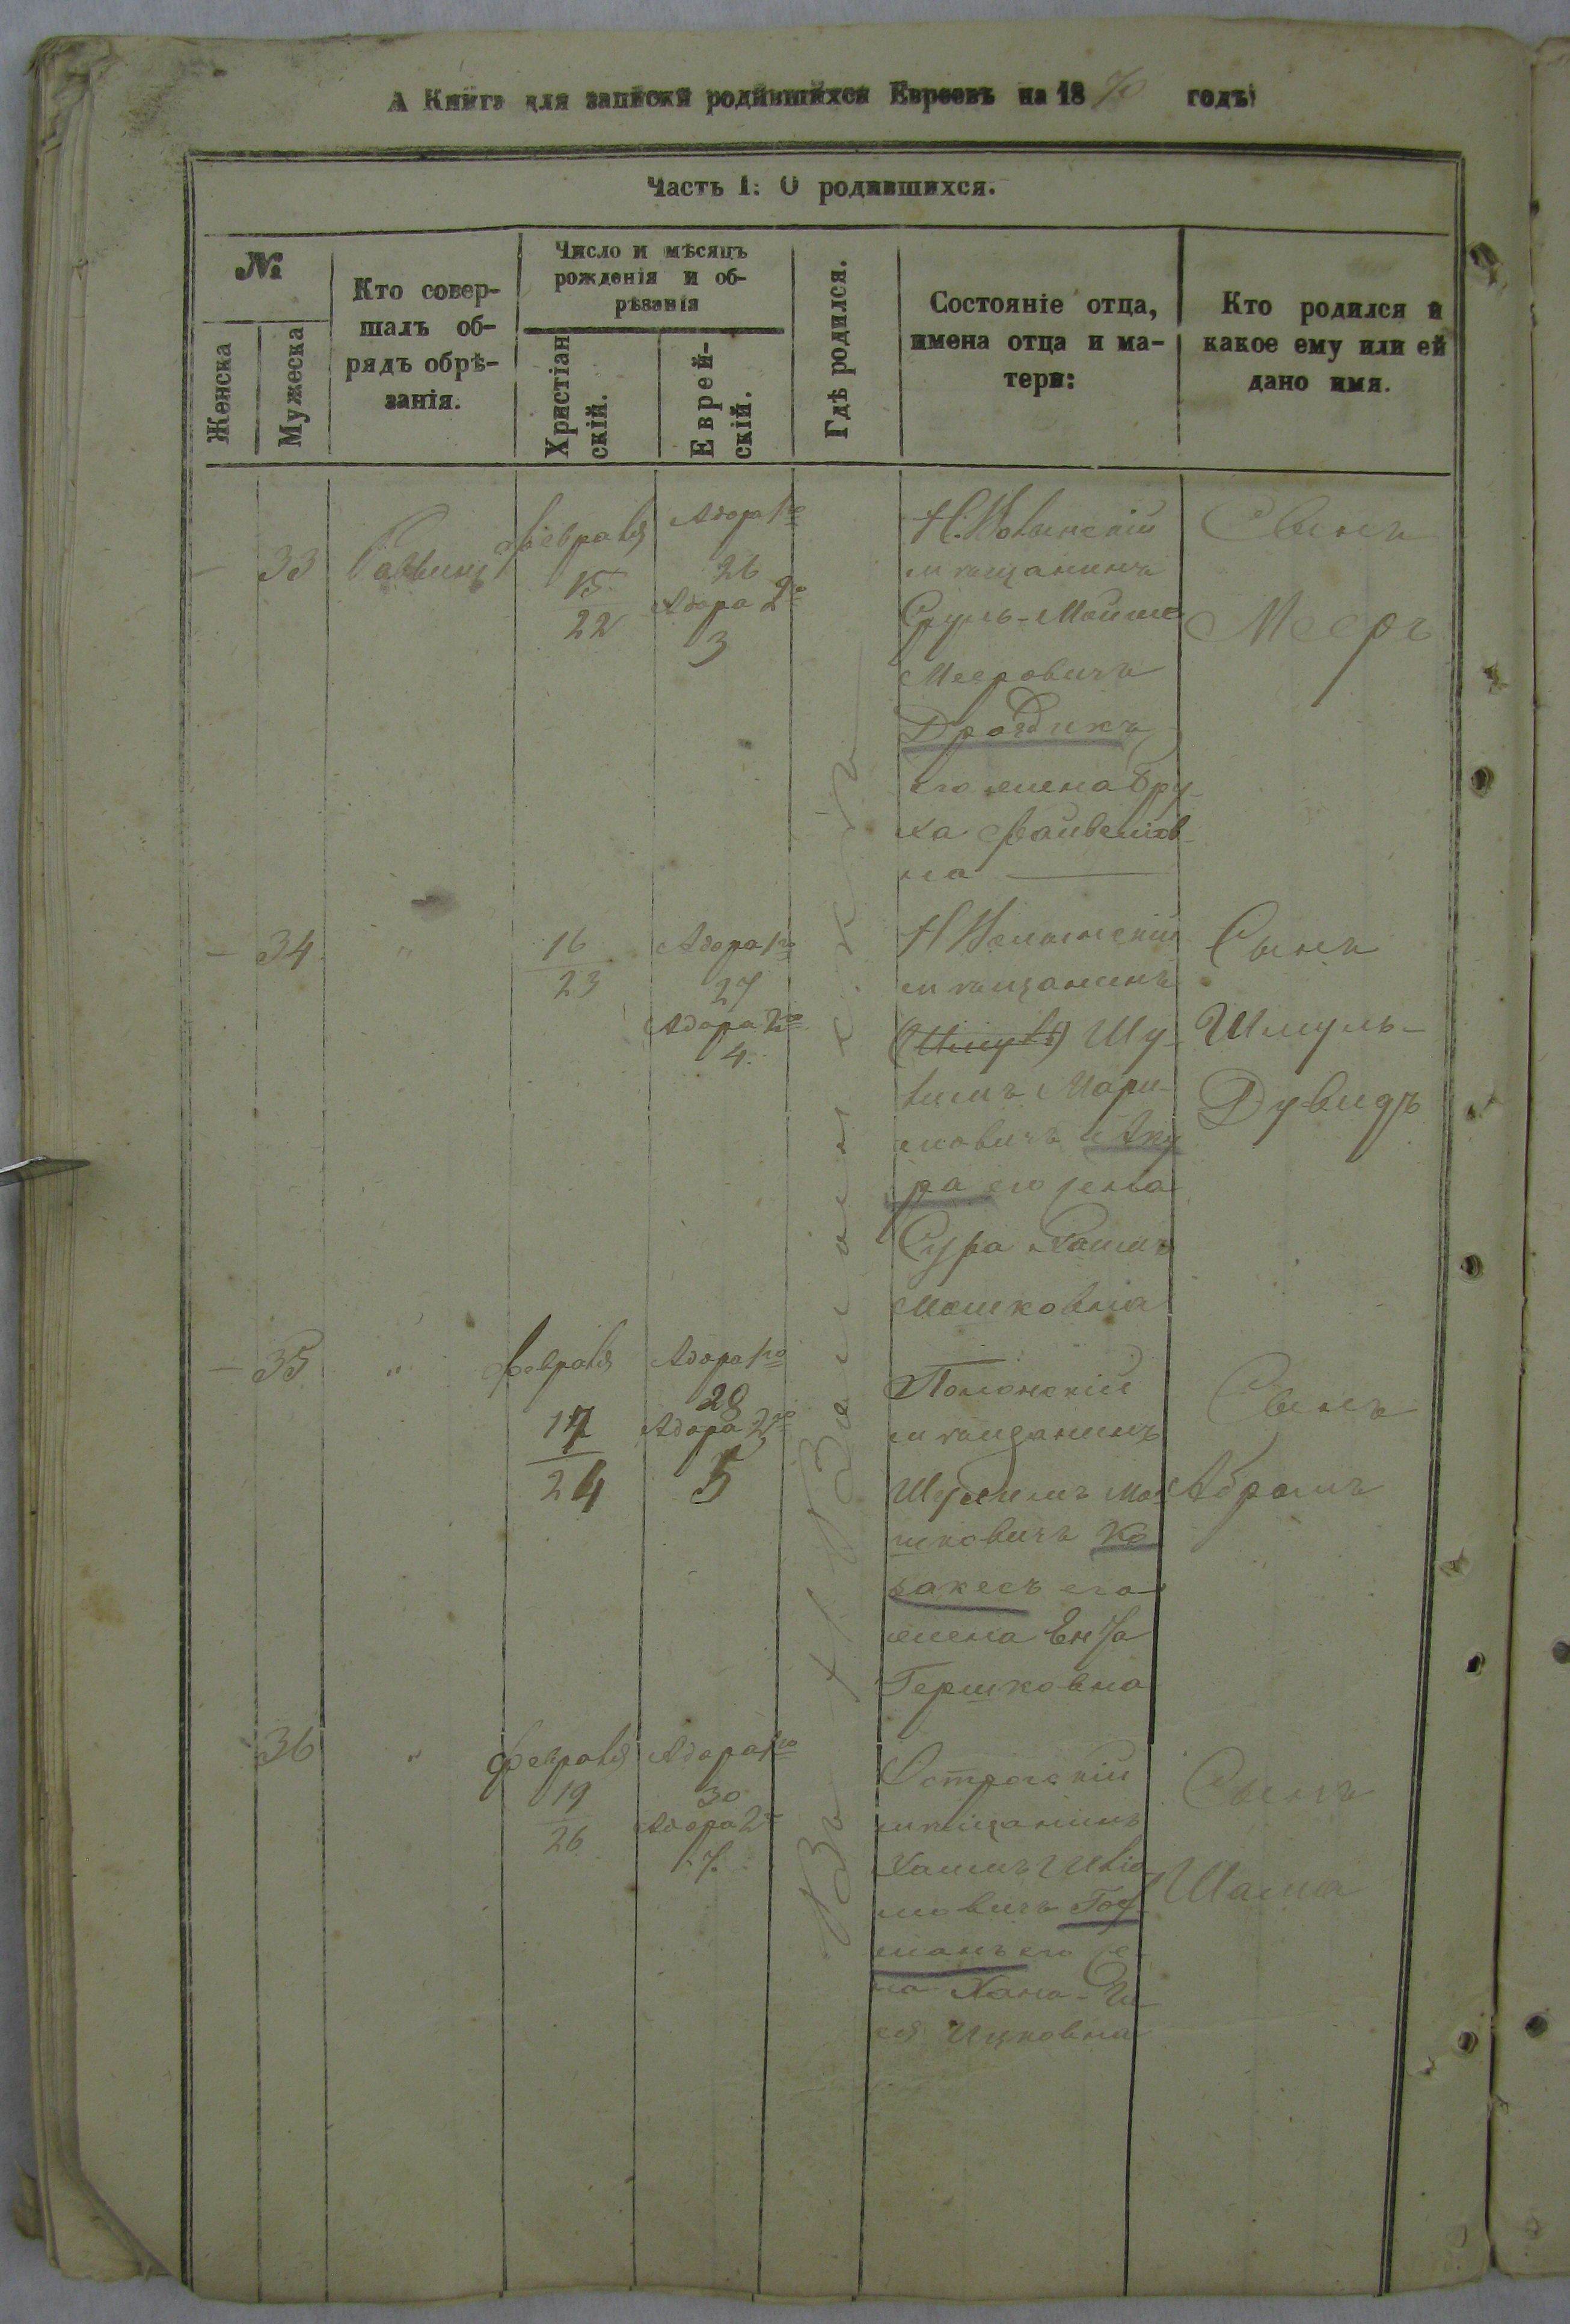 А Книга для записки родившихся Евреевъ на 1870 годъ
Часть I: О родившихся.
№
Женска
Мужеска
Кто совер-
шалъ об-
рядъ обрѣ-
занія.
Число и мѣсяцъ
рожденія и об-
рѣзанія
Христіан
скій.
Еврей-
скій.
Гдѣ родился.
Состояніе отца,
имена отца и ма-
тери:
Кто родился и
какое ему или ей
дано имя.
— 33
Раввинъ
февраля
15
22
Адара 1го
26
Адара 2го
3
Н. Волынскій
мѣщанинъ
Сруль-Мойше
Мееровичъ
Дроздикъ
его жена Бру-
ха Файвелiов-
на
Сынъ
Мееръ
— 34
"
16
23
Адара 1го
27
Адара 2го
4.
Н Волынскій
мѣщанинъ
Шу-
лимъ
его жена
Сура
Мошковна
Сынъ
Шмуль-
Дувидъ
— 35
"
февраля
17
24
Адара 1го
28
Адара 2го
5
Полонскій
мѣщанинъ
Шулимъ Мо-
шковичъ Ко
закесъ его
жена Ента
Гершковна
Сынъ
Абрамъ
36
"
февраля
19
26
Адара 1го
30
Адара 2го
7.
Острогскій
мѣщанинъ
Хаимъ
его же-
на Хана-
Ицковна
Сынъ
Шама
Въ Н